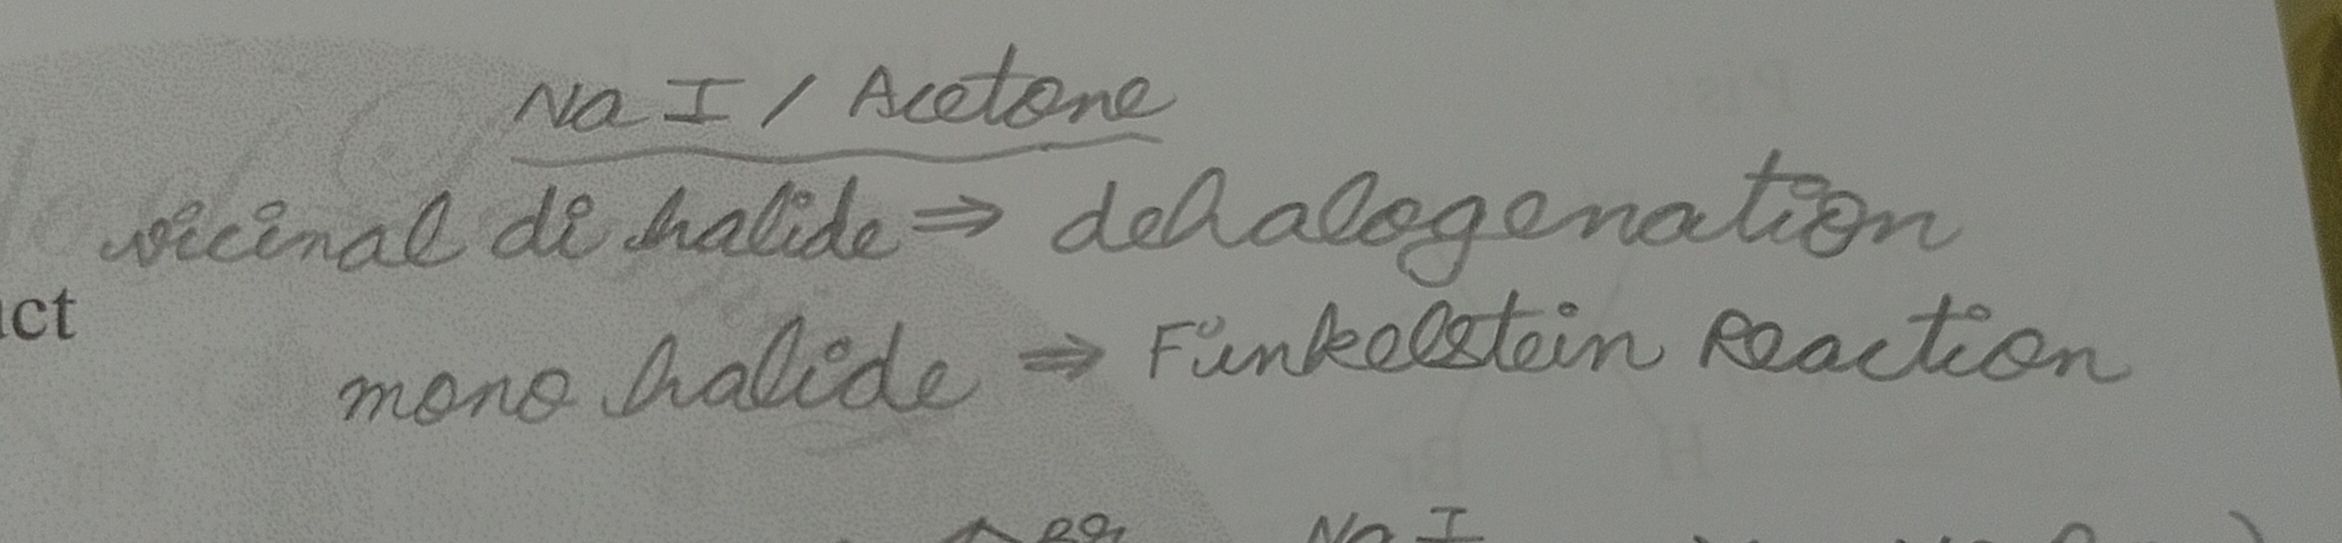 Na I / Acetone
vicinal di halide ⇒ dehalogenation
ct
mono halide ⇒ Finkelstein Reaction
Na I